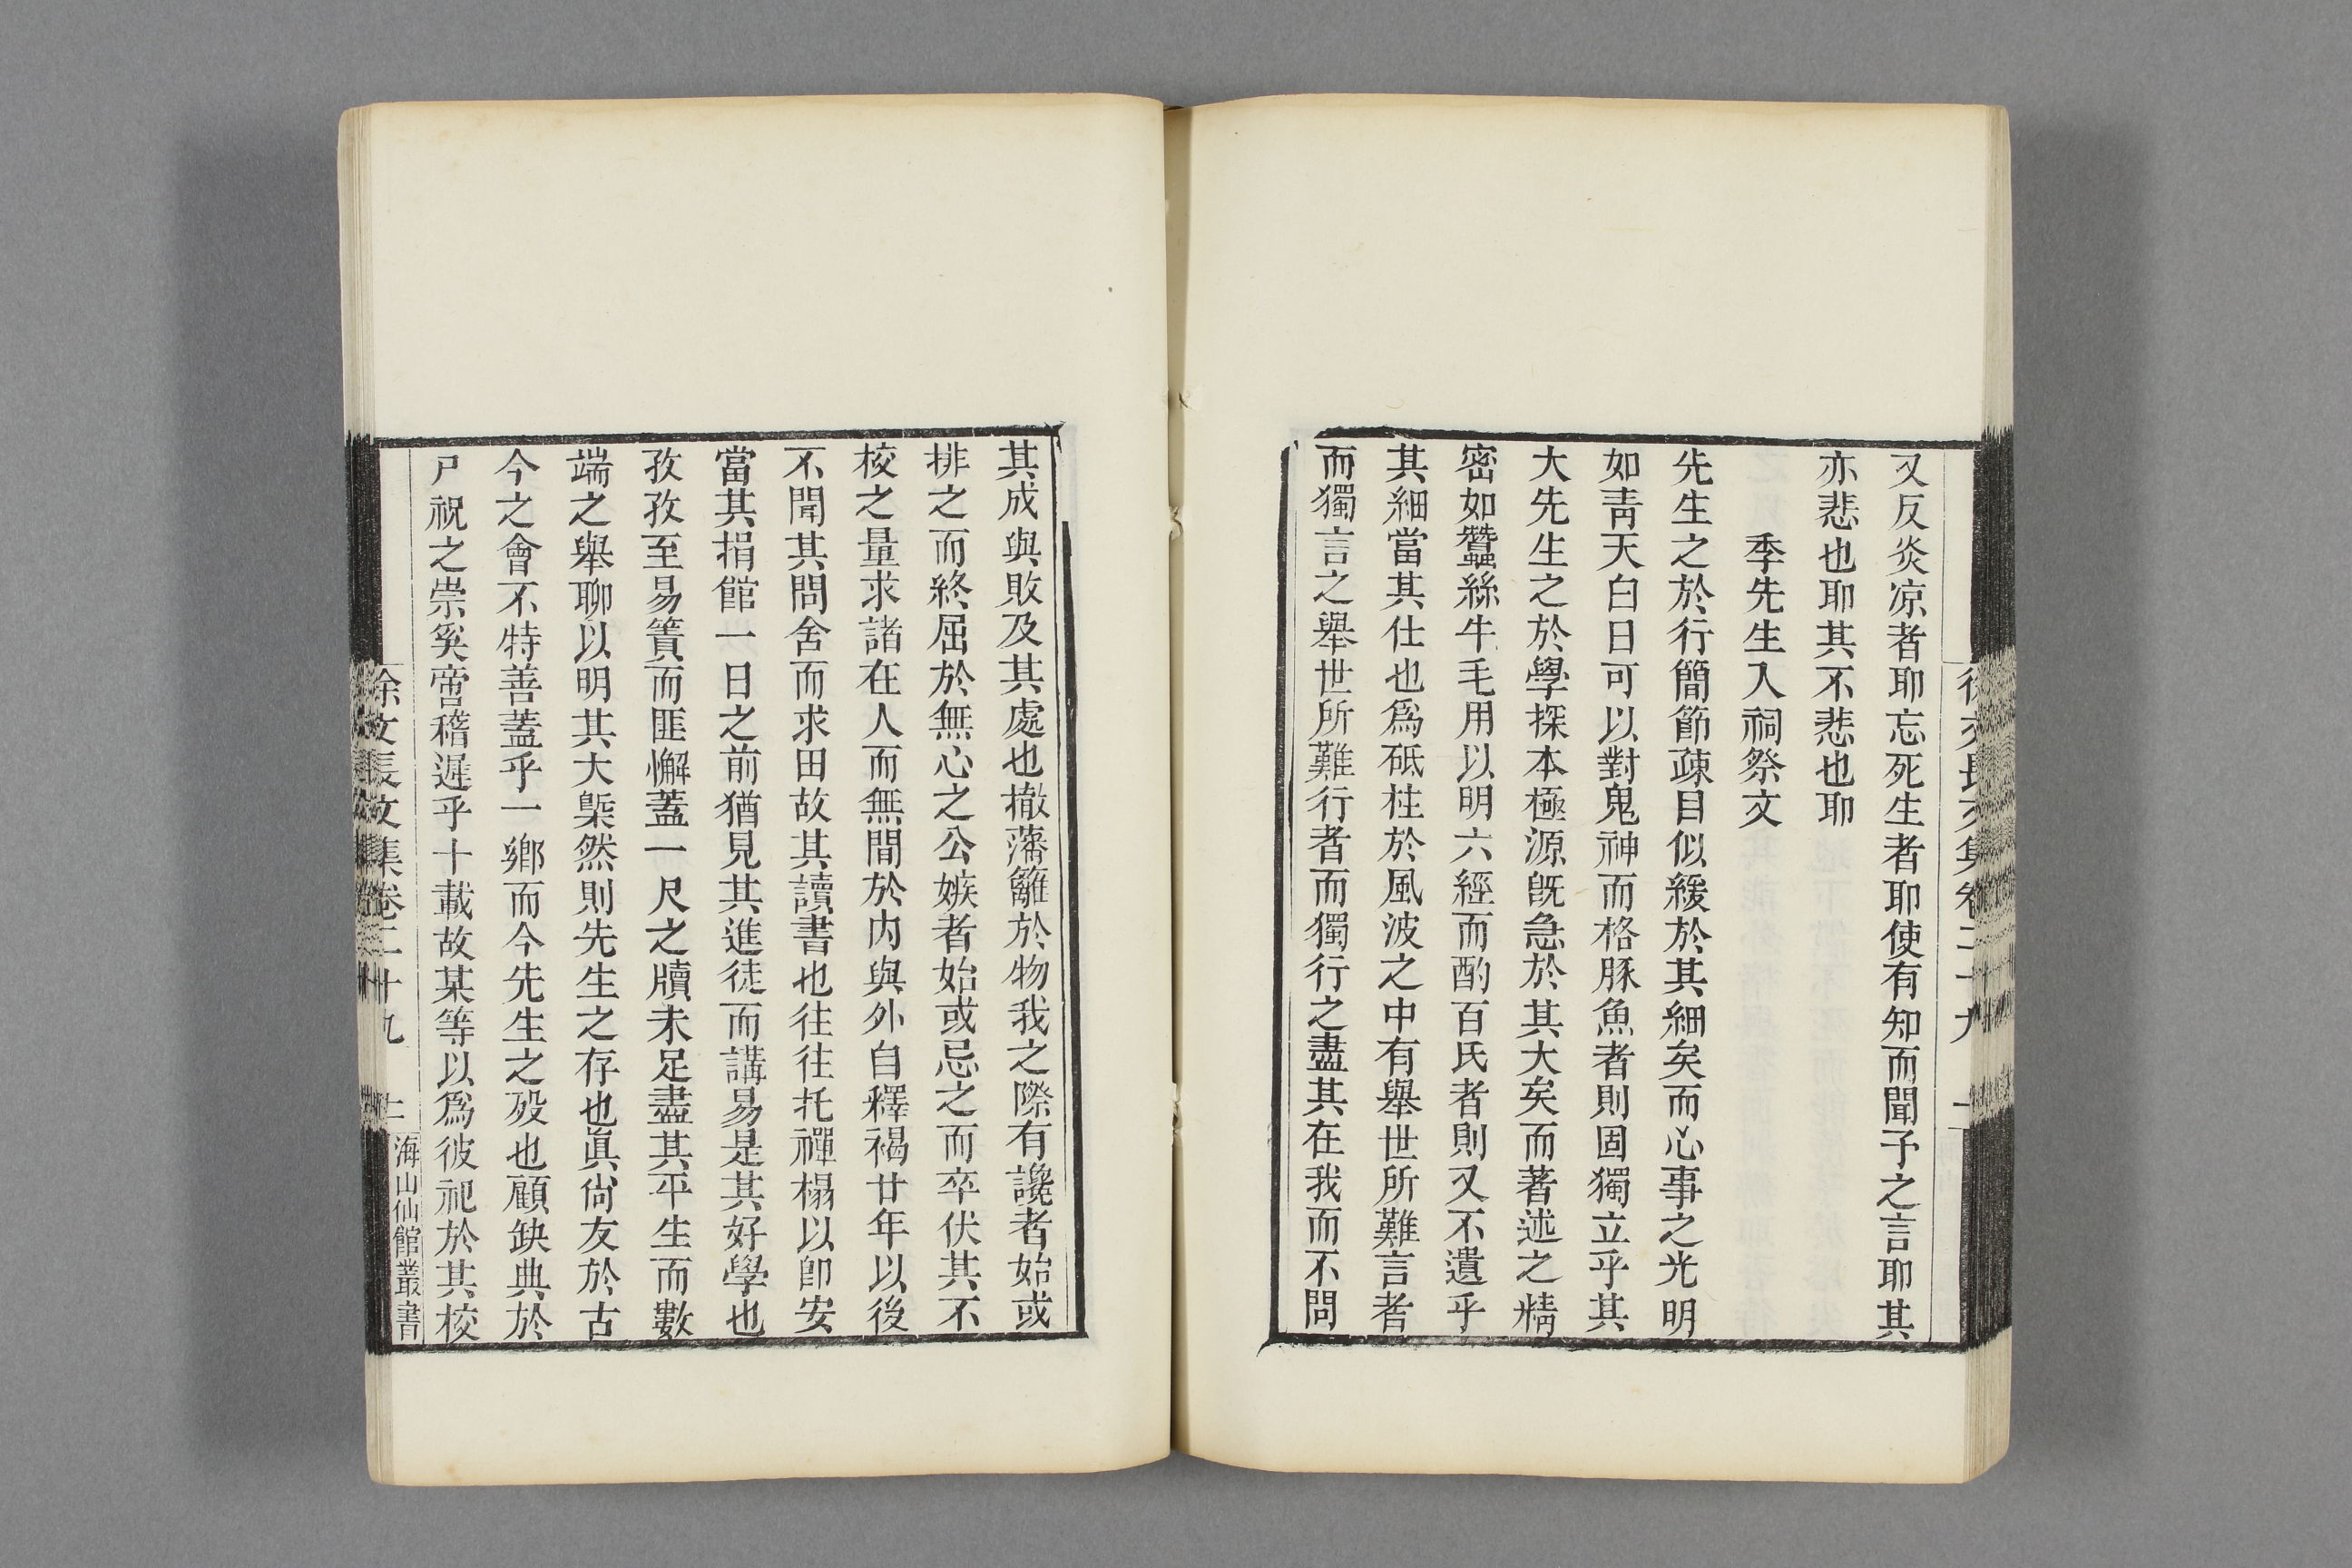 又反炎凉者耶忘死生者耶使有知而聞予之言耶其
亦悲也耶其不悲也耶
季先生入祠祭文
先生之於行簡節疎目似緩於其細矣而心事之光明
如靑天白日可以對鬼神而格豚魚者則固獨立乎其
大先生之於學探本極源旣急於其大矣而著述之精
密如蠶絲牛毛用以明六經而酌百氏者則又不遺乎
其細當其仕也爲砥柱於風波之中有舉世所難言者
而獨言之舉世所難行者而獨行之盡其在我而不問
其成與敗及其處也撤藩籬於物我之際有讒者始或
排之而終屈於無心之公嫉者始或忌之而卒伏其不
校之量求諸在人而無間於內與外自釋褐廿年以後
不聞其問舍而求田故其讀書也往往托禪榻以卽安
當其捐館一日之前猶見其進徒而講易是其好學也
孜孜至易簀而匪懈蓋一尺之牘未足盡其平生而數
端之舉聊以明其大槩然則先生之存也眞尙友於古
今之會不特善蓋乎一鄉而今先生之歿也顧缺典於
尸祝之崇奚啻稽遲乎十載故某等以爲彼祀於其校
徐文長文集卷二十九
二
海山仙館叢書